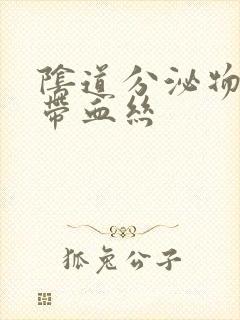 陰道分泌物
帶血絲
狐兔公子